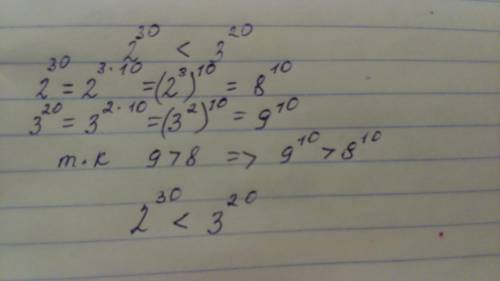 2³⁰ < 3²⁰
2³⁰ = 2³·¹⁰ = (2³)¹⁰ = 8¹⁰
3²⁰ = 3²·¹⁰ = (3²)¹⁰ = 9¹⁰
т.к 9>8 => 9¹⁰ > 8¹⁰
2³⁰ < 3²⁰